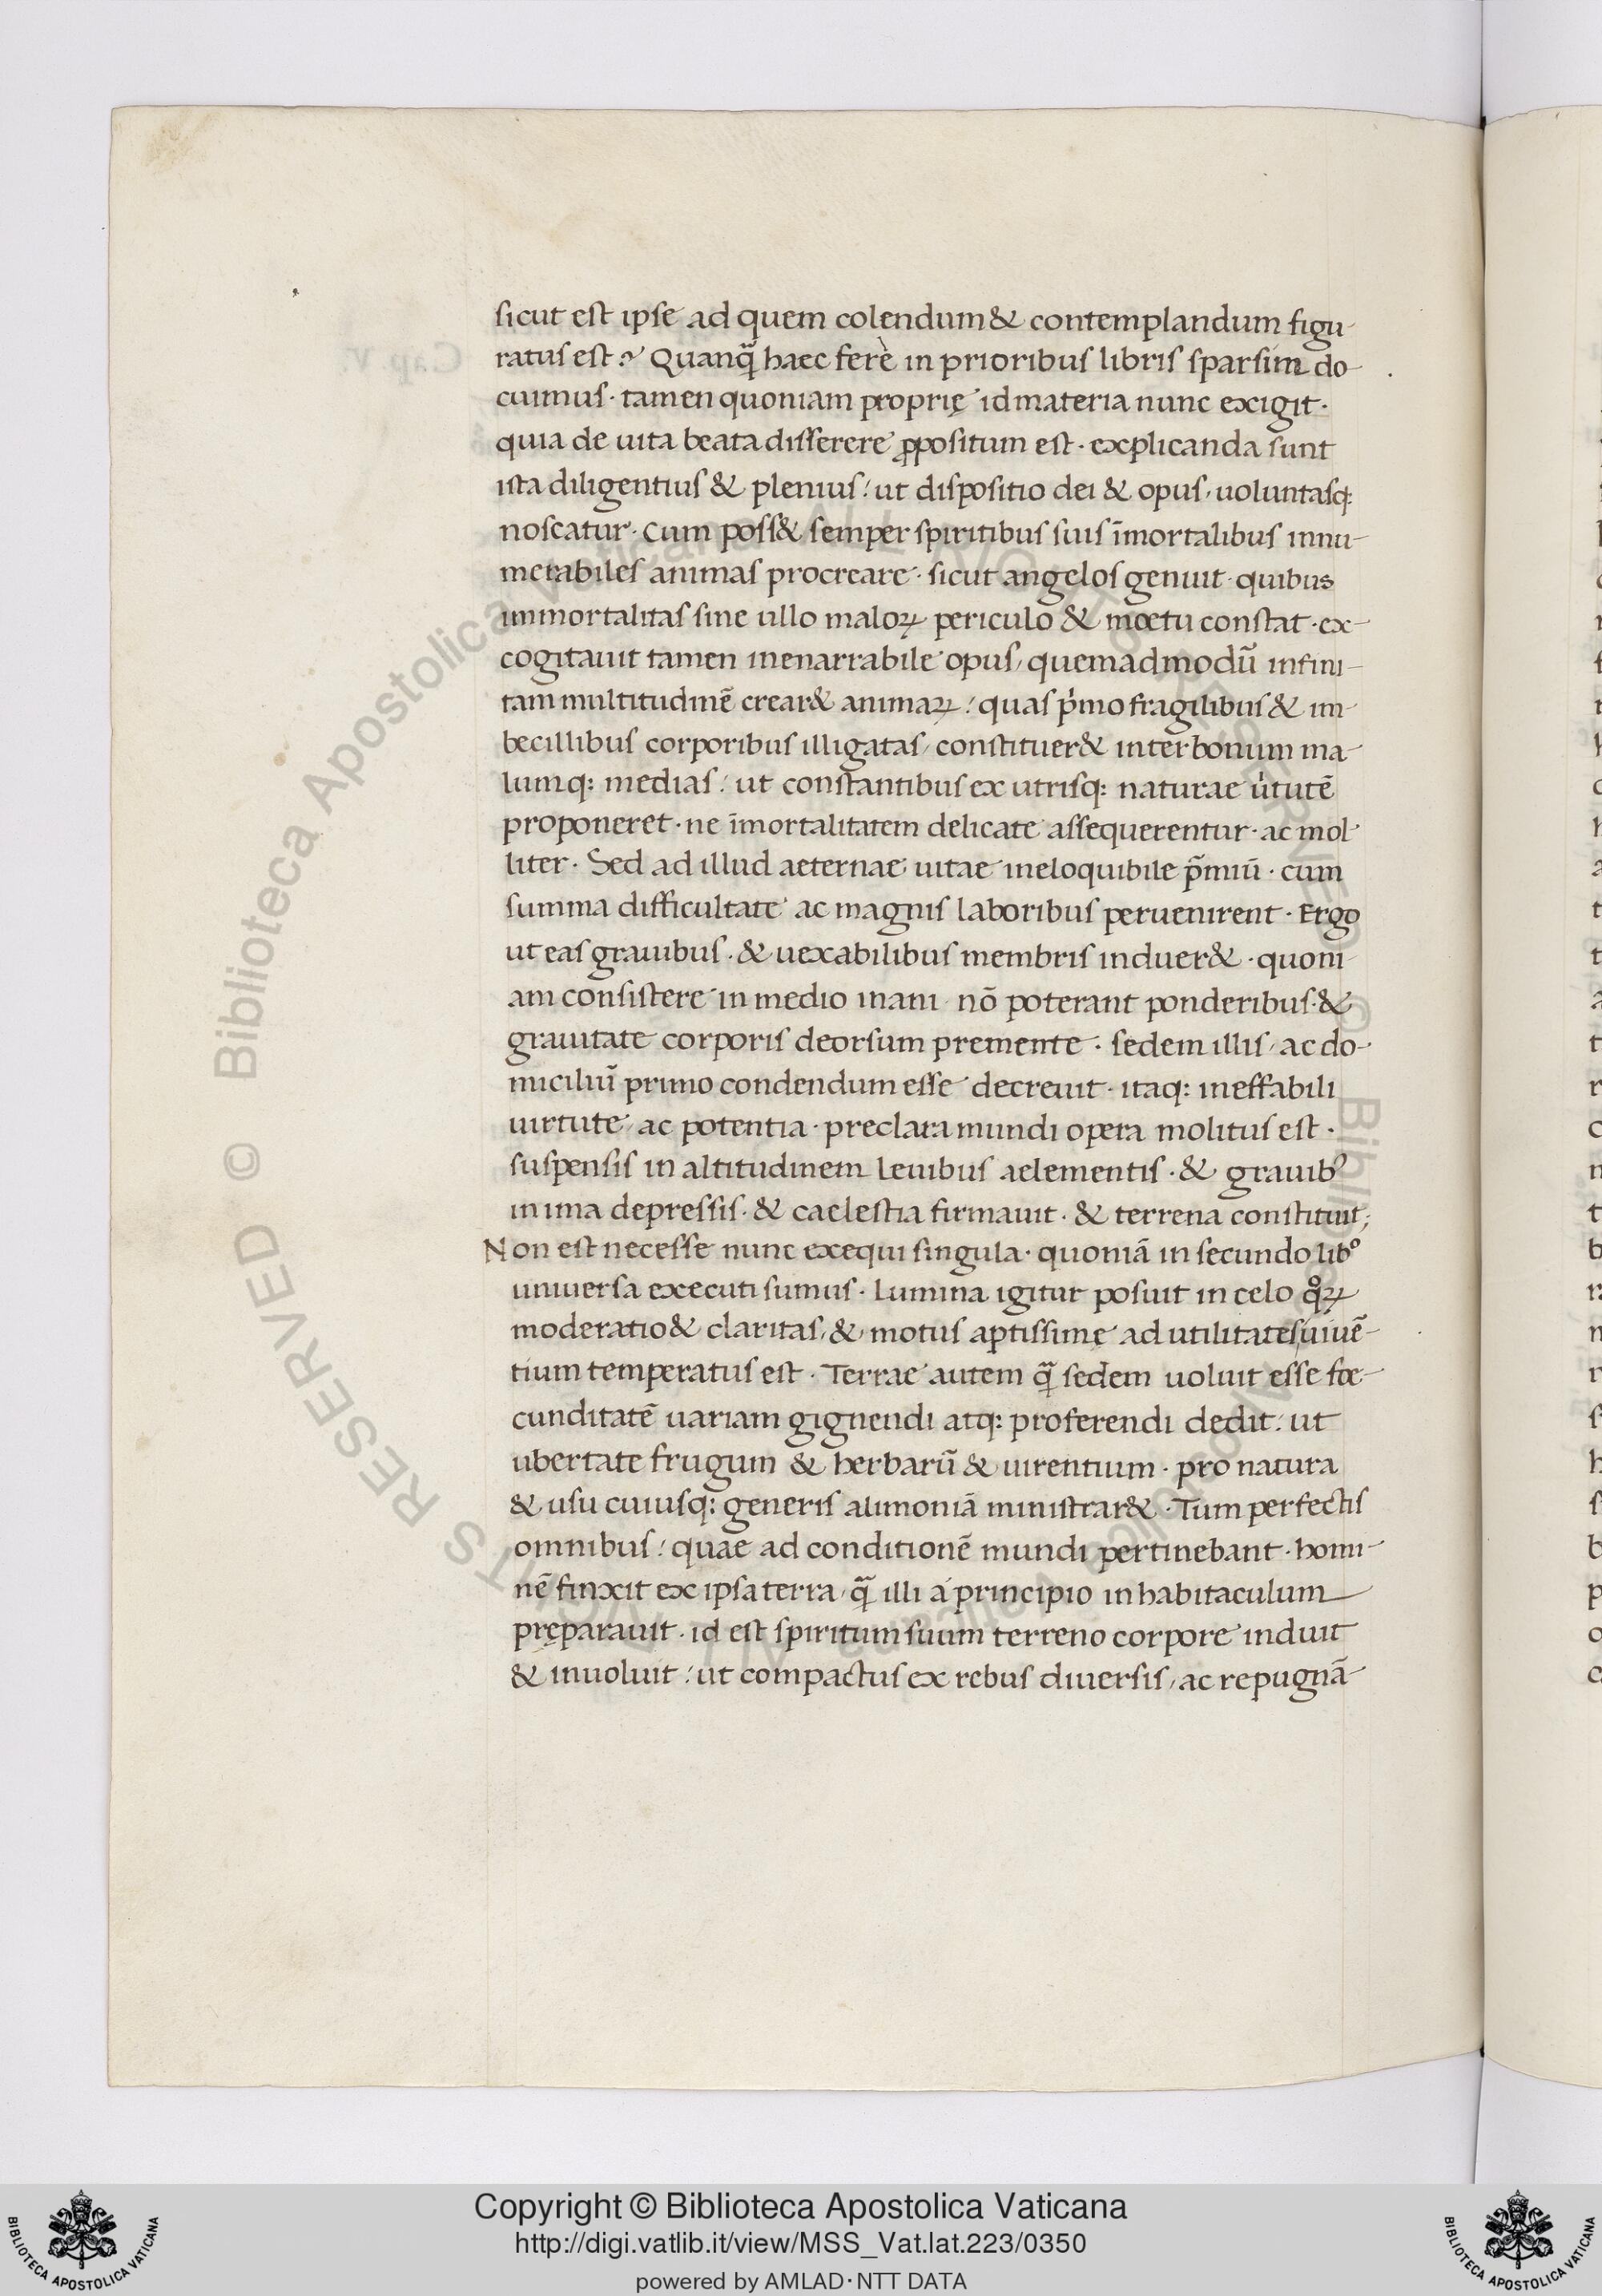 sicut est ipse ad quem colendum & contemplandum figu-
ratus est? Quanq̃ haec ferè in prioribus libris sparsim do-
cuimus · tamen quoniam proprię id materia nunc exigit ·
quia de uita beata disserere ꝓpositum est · explicanda sunt
ista diligentius & plenius: ut dispositio dei & opus, uoluntasq:
noscatur · Cum poss& semper spiritibus suis īmortalibus innu-
merabiles animas procreare · sicut angelos genuit · quibus
immortalitas sine ullo maloꝝ periculo & moetu constat · ex-
cogitauit tamen inenarrabile opus, quemadmodū infini-
tam multitudinē crear& animaꝝ: quas p̍mo fragilibus & im-
becillibus corporibus illigatas, constituer& inter bonum ma-
lumq: medias: ut constantibus ex utrisq: naturae u̍tutē
proponeret · ne īmortalitatem delicate assequerentur · ac mol
liter · Sed ad illud aeternae uitae ineloquibile p̄miū · cum
summa difficultate ac magnis laboribus peruenirent · Ergo
ut eas grauibus · & uexabilibus membris induer& · quoni
am consistere in medio inani nō poterant ponderibus · &
grauitate corporis deorsum premente · sedem illis, ac do-
miciliū primo condendum esse decreuit · itaq: ineffabili
uirtute, ac potentia · preclara mundi opera molitus est ·
suspensis in altitudinem leuibus aelementis · & grauibꝰ
in ima depressis · & caelestia firmauit · & terrena constituit;
Non est necesse nunc exequi singula · quoniā in secundo libº
uniuersa executi sumus · Lumina igitur posuit in celo qͦꝝ
moderatio & claritas, & motus aptissime ad utilitates uiuē-
tium temperatus est · Terrae autem q̃ sedem uoluit esse foe-
cunditatē uariam gignendi atq: proferendi dedit: ut
ubertate frugum & herbarū & uirentium · pro natura
& usu cuiusq: generis alimoniā ministrar& · Tum perfectis
omnibus: quae ad conditionē mundi pertinebant · homi-
nē finxit ex ipsa terra, q̃ illi a principio in habitaculum
pręparauit · id est spiritum suum terreno corpore induit
& inuoluit: ut compactus ex rebus diuersis, ac repugnā-
Copyright © Biblioteca Apostolica Vaticana
http://digi.vatlib.it/view/MSS_Vat.lat.223/0350
powered by AMLAD·NTT DATA